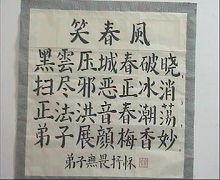 笑春風
黑雲压城春破晓
扫尽邪恶正冰消
正法洪音春潮荡
弟子展顔梅香妙
弟子無畏抒怀